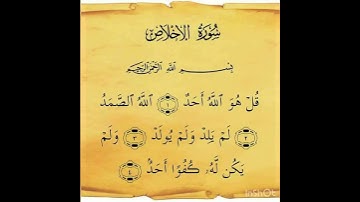 سُورَةُ الإِخْلَاصِ
بِسْمِ اللَّهِ الرَّحْمَٰنِ الرَّحِيمِ
قُلْ هُوَ ٱللَّهُ أَحَدٌ ١ ٱللَّهُ ٱلصَّمَدُ
٢ لَمْ يَلِدْ وَلَمْ يُولَدْ ٣ وَلَمْ
يَكُن لَّهُۥ كُفُوًا أَحَدٌۢ ٤
InShOt